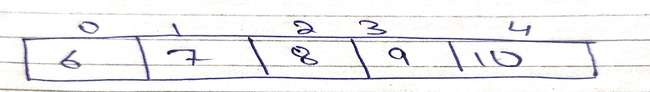 0 1 2 3 4
6 7 8 9 10